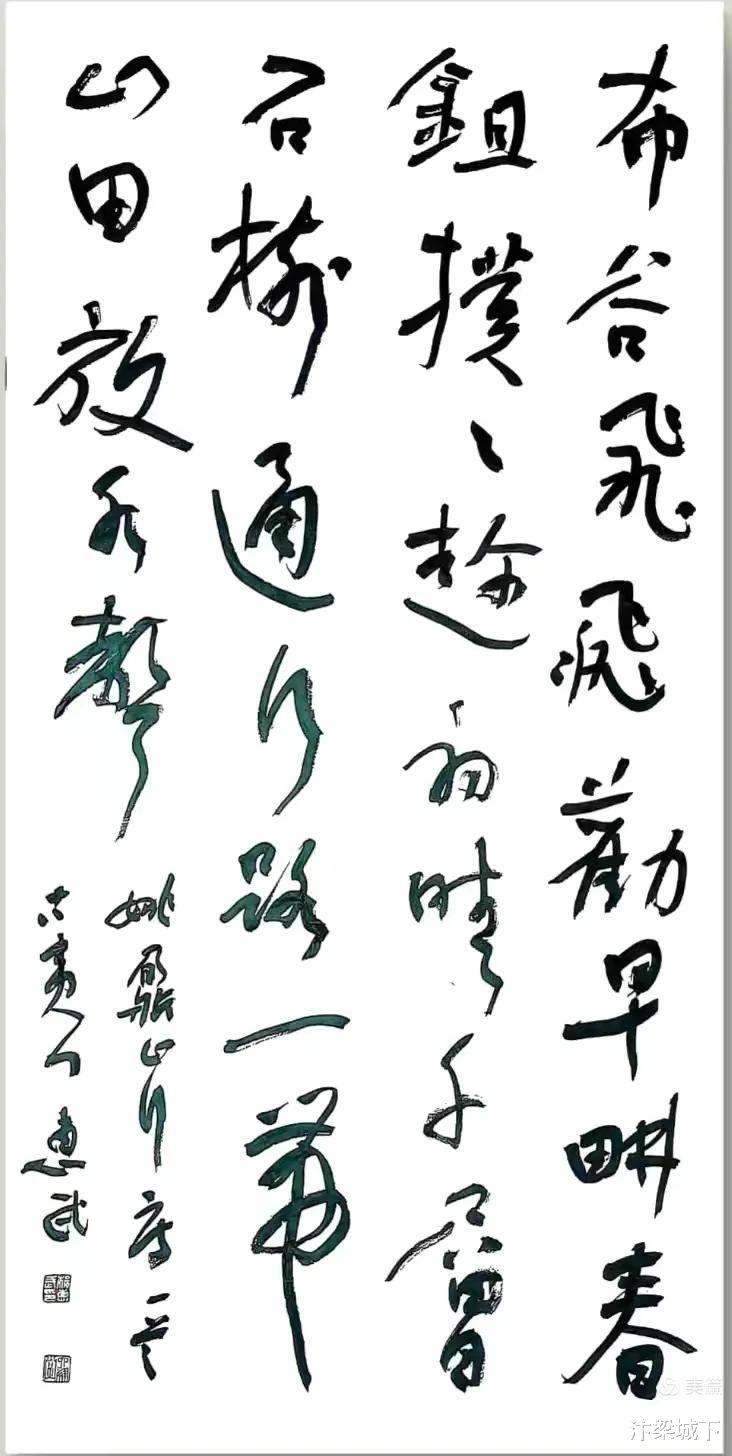 布谷飛飛勸早畊春
鉏撲々趁初晴千層
石樹通行路一帶
山田放水聲
姚鼐山行詩一首
古夷门惠武
美篇
汴梁城下